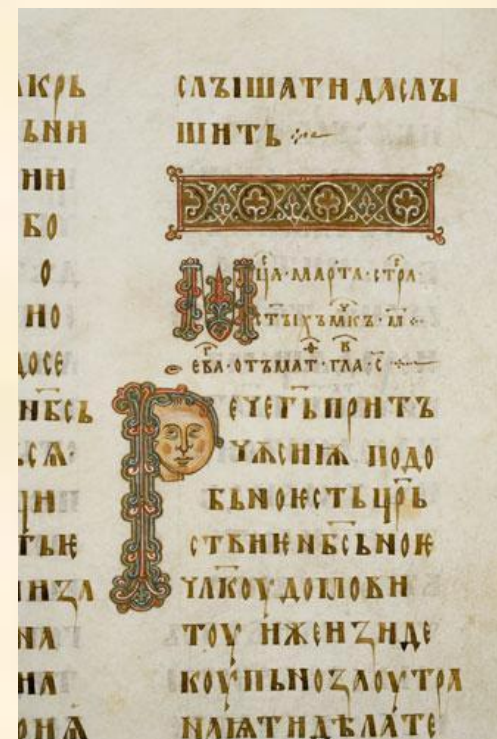 ЬNИ
НИ
БО
О
НО
ДОСЕ
NБ҃СЬ
ЬСѦ·
ЦИ
ТЬѤ
ИНЗА
NА
НА
ОНѦ
СЛЪІШАТИДАСЛЪІ
ШИТЬ
МЦ҃А·МАРТА·СТРА·
СТЪІХЪМЧ҃КЪ·М҃·
ЕВА·ОТЪМАТ·ГЛА·С
РЕЧЕГЬ҃ПРИТЪ
ЧѪСИѬ ПОДО
БЬNОѤСТЬЦР҃Ь
СТВИѤNБ҃СЬNОѤ
ЧЛ҃КОУДОМОВИ
ТОУ ИЖЕИЗИДЕ
КОУПЬNОЗАОУТРА
NАІѦТИДѢЛАТЕ